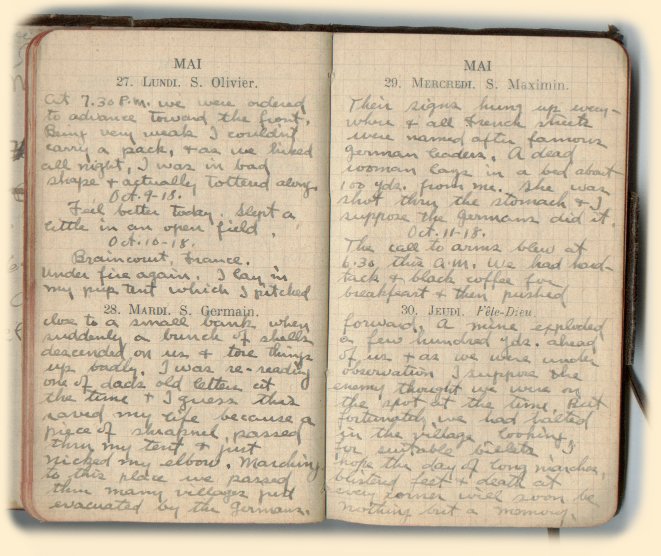 MAI
27. LUNDI. S. Olivier.
At 7.30 P.M. we were ordered
to advance toward the front.
Being very weak I couldn't
carry a pack, & as we hiked
all night, I was in bad
shape & actually tottered along.
Oct. 9-18.
Feel better today. Slept a
little in an open field.
Oct. 10-18.
Braincourt, France.
Under fire again. I lay in
my pup tent which I pitched
28. MARDI. S. Germain.
close to a small bank when
suddenly a bunch of shells
descended on us & tore things
up badly. I was re-reading
one of dads old letters at
the time & I guess this
saved my life because a
piece of shrapnel passed
thru my tent & just
nicked my elbow. Marching
to this place we passed
thru many villages just
evacuated by the Germans.
MAI
29. MERCREDI. S. Maximin.
Their signs hung up every-
where & all French streets
were named after famous
German leaders. A dead
woman lays in a bed about
100 yds. from me. She was
shot thru the stomach & I
suppose the Germans did it.
Oct. 11-18.
The call to arms blew at
6.30 this A.M. We had hard-
tack & black coffee for
breakfast & then pushed
30. JEUDI. Fête-Dieu.
forward. A mine exploded
a few hundred yds. ahead
of us & as we were under
observation I suppose the
enemy thought we were on
the spot at the time. But
fortunately we had halted
in the village looking
for suitable billets. I
hope the day of long marches,
blistered feet & death at
every corner will soon be
nothing but a memory.